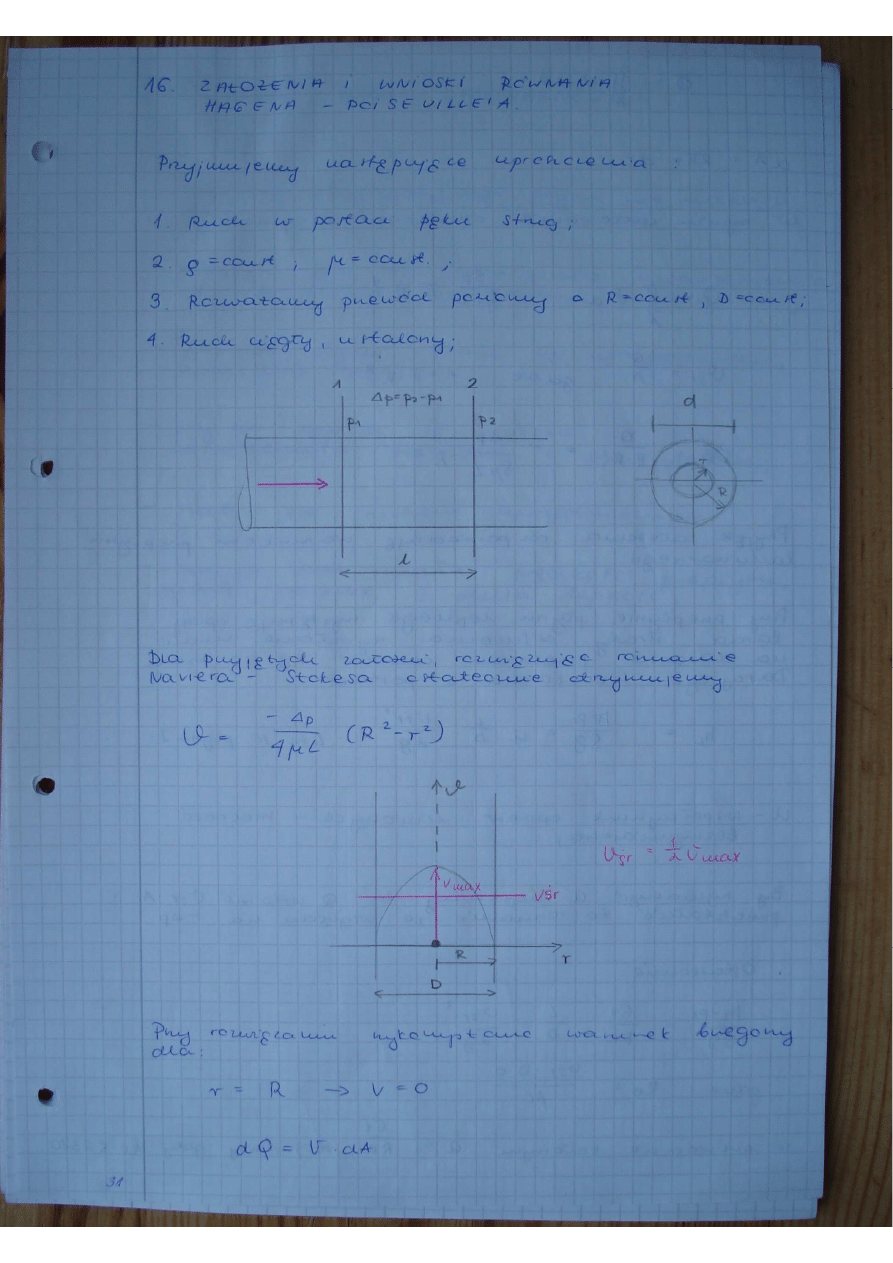 16. ZAŁOŻENIA I WNIOSKI RÓWNANIA
HAGENA - POISEVILLE'A.
Przyjmujemy następujące uproszczenia :
1. Ruch w postaci pęku strug;
2. ρ = const ; μ = const. ;
3. Rozważamy przewód poziomy o R = const, D = const;
4. Ruch ciągły, ustalony;
1 2
Δp = p2 - p1
p1 p2
l
d
r
R
Dla przyjętych założeń, rozwiązując równanie
Naviera - Stokesa ostatecznie otrzymujemy
υ = -Δp / 4μL (R² - r²)
υ
Vśr = 1/2 Vmax
Vmax
Vśr
R
r
D
Przy rozwiązaniu wykorzystano warunek brzegowy
dla:
r = R → V = 0
dQ = V · dA
31